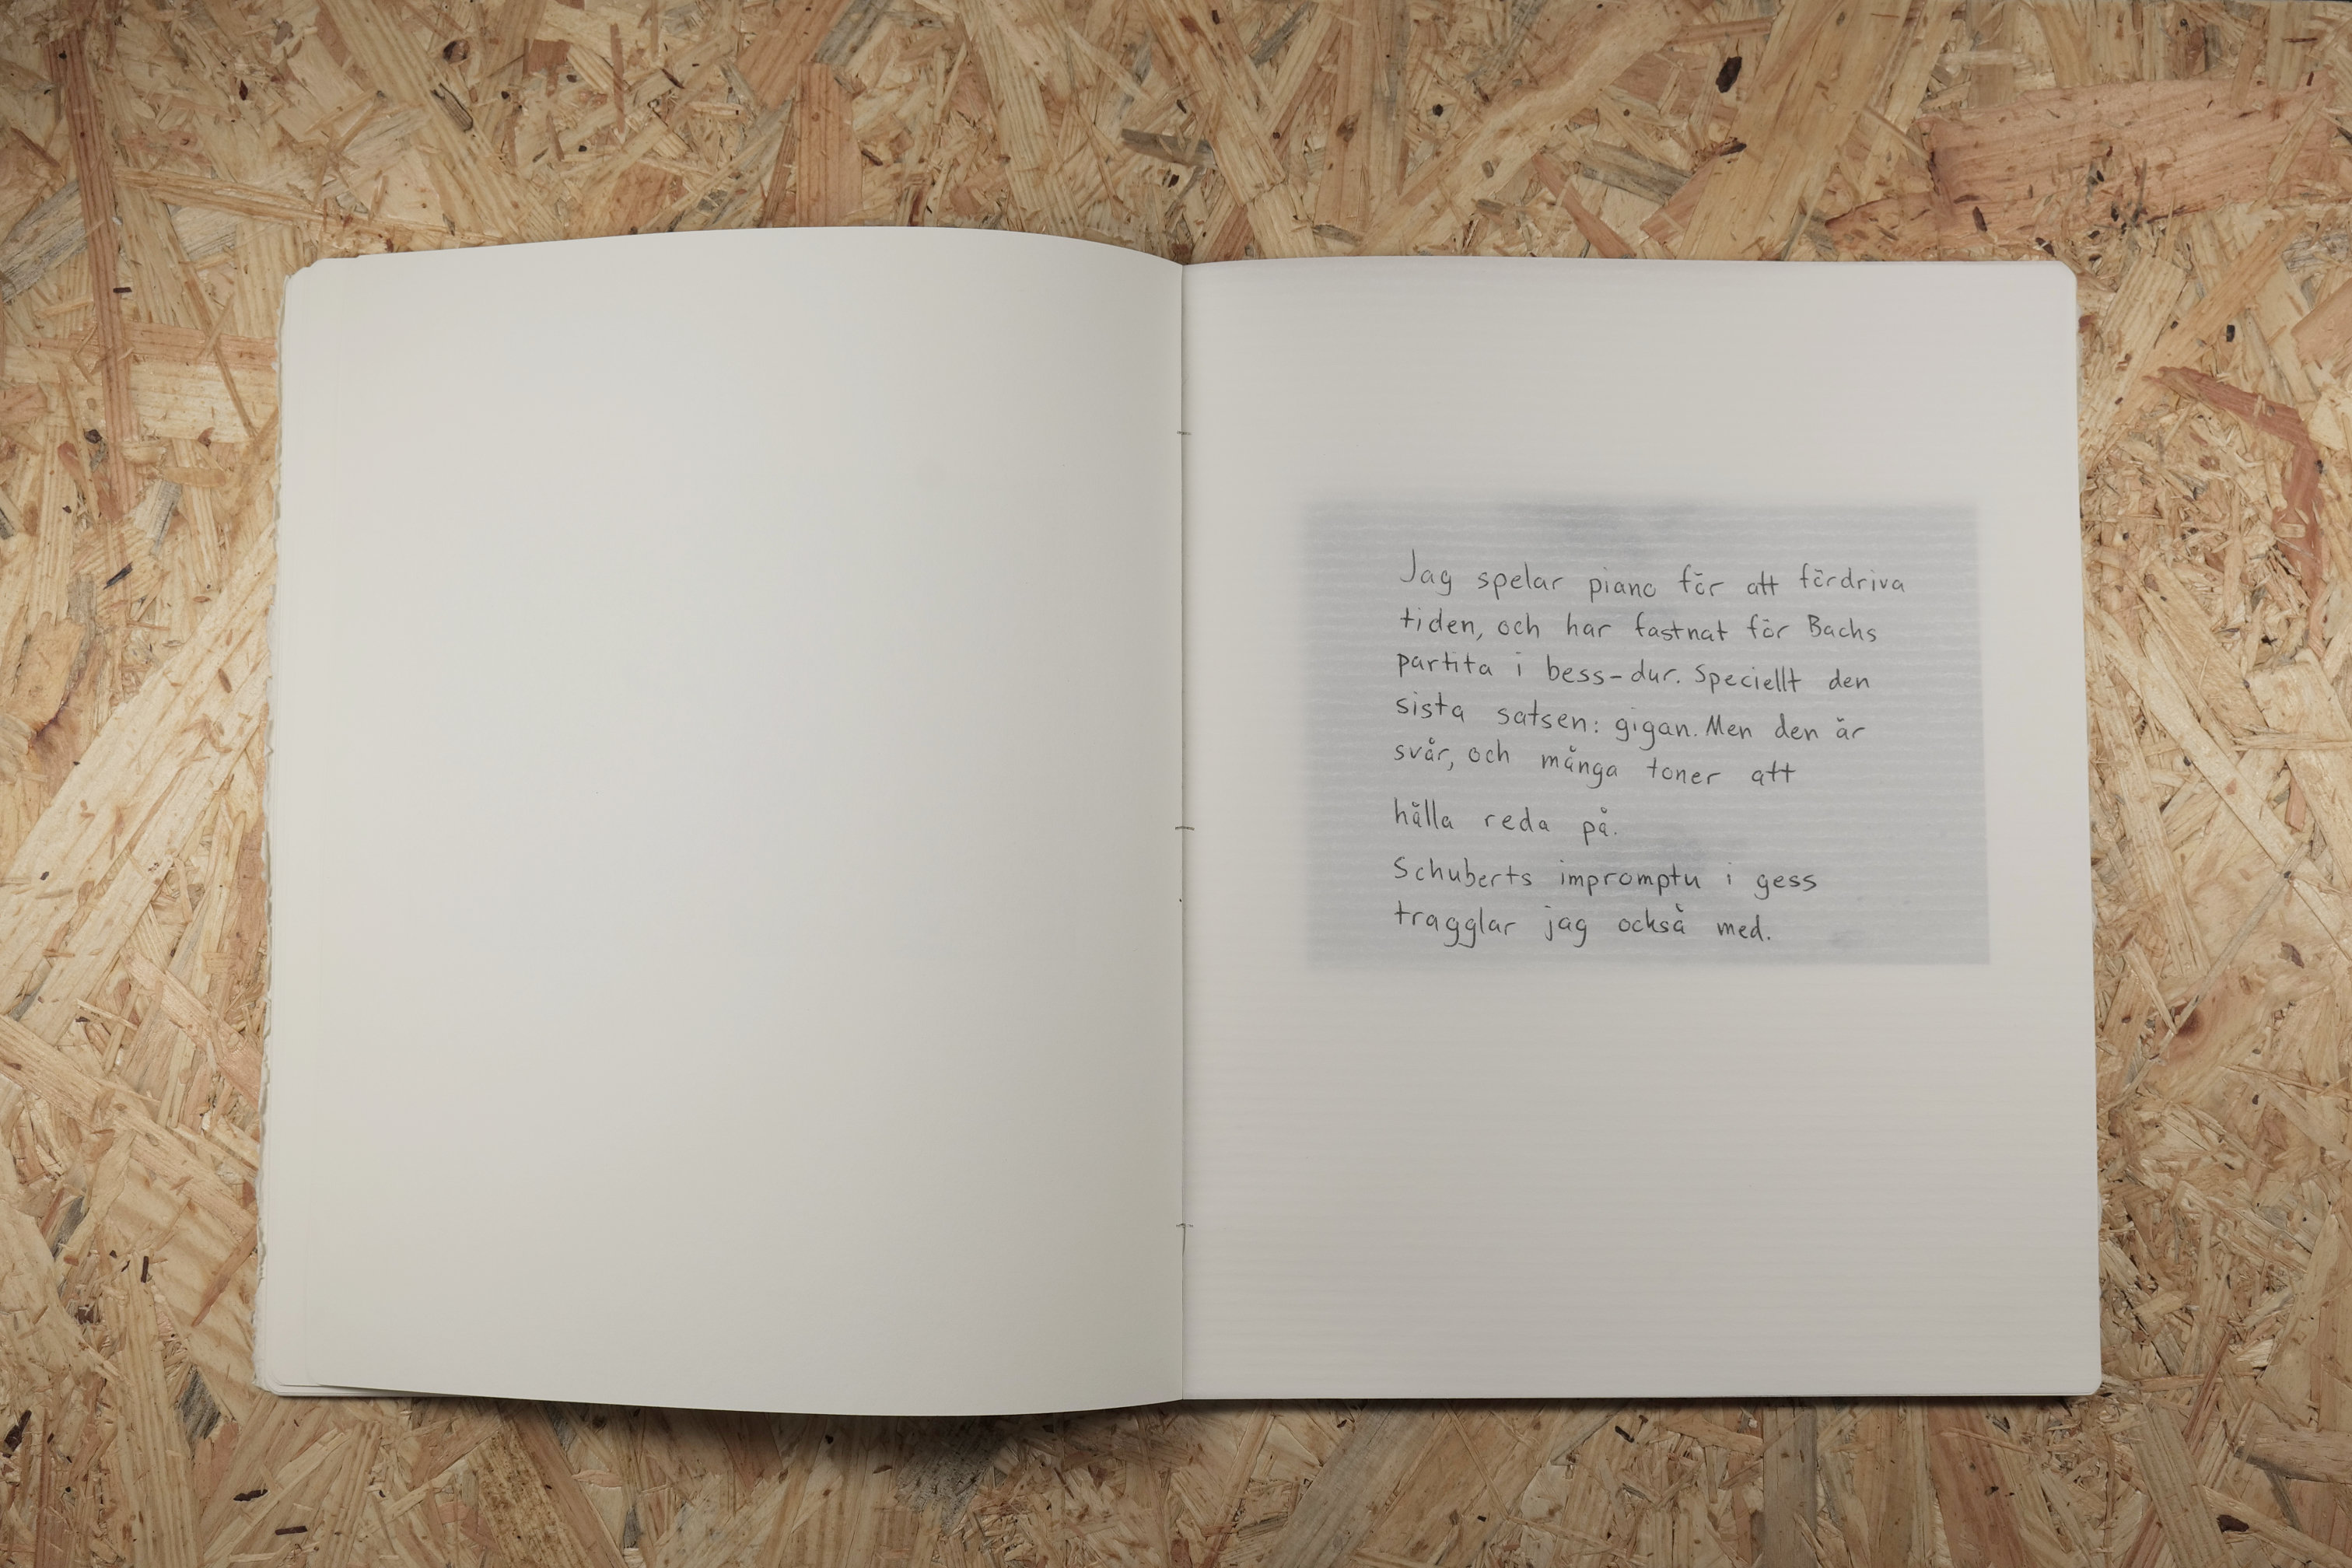 Jag spelar piano för att fördriva
tiden, och har fastnat för Bachs
partita i bess-dur. Speciellt den
sista satsen: gigan. Men den är
svår, och många toner att
hålla reda på.
Schuberts impromptu i gess
tragglar jag också med.